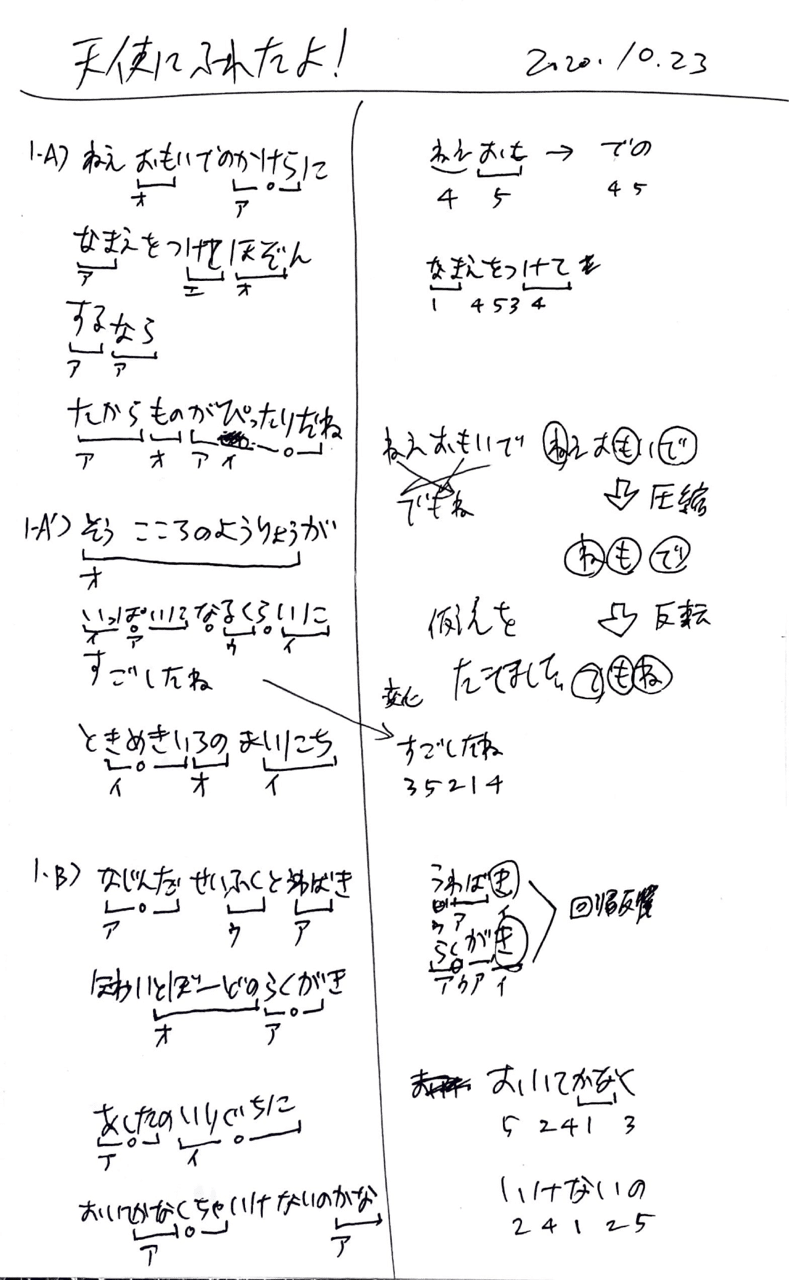 天使にふれたよ! 2020.10.23
1-A) ねえ おもいでのかけらに
オ ア
なまえをつけてほぞん
ア エ オ
するなら
ア ア
たからものがぴったりだね
ア オ ア イ
1-A') そう こころのようりょうが
オ
いっぱいになるくらいに
イ ア ウ イ
すごしたね
ときめきいろの まいにち
イ オ イ
1.B) なじんだ せいふくとうわばき
ア ウ ア
ほわいとぼーどのらくがき
オ ア
あしたのいりぐちに
ア イ
おいてかなくちゃいけないのかな
ア ア
ねえおも → での
4 5 4 5
なまえをつけて
1 4 5 3 4
ねえおもいで ねえおもいで
でもね
圧縮
ねもで
仮えんを 反転
たてまして、でもね
変化
すごしたね
3 5 2 1 4
うわばき
ウ ア イ
回帰反響
らくがき
ア ウ ア イ
おいてかなく
5 2 4 1 3
いけないの
2 4 1 2 5